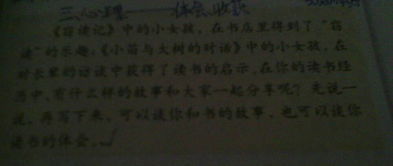 三、心理——体会、收获
《窃读记》中的小女孩，在书店里得到了“窃
读”的乐趣，《小苗与大树的对话》中的小女孩，在
对长辈的访谈中获得了读书的启示，在你的读书经
历中，有什么样的故事和大家一起分享呢？先说一
说，再写下来，可以谈你和书的故事，也可以谈你
读书的体会。